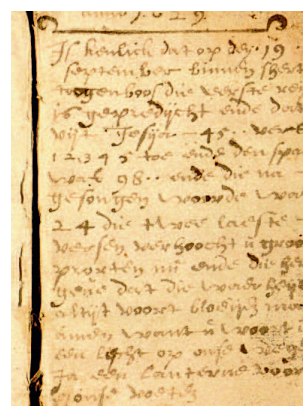 anno 1629
Is kenlick dat op den 19
september binnen shert
togenbos die eerste rey
is gepredijckt ende dae
uijt gesijn 45 .. vers
1 2 3 4 5 toe ende den spa
was 98 .. ende die na
gesongen woorde wa
24 die twee laeste
versen verhoocht u groo
poorten nu ende die her
geve dat die waerheyt
altijt voort bloeije mo
binnen want u woort
een licht op onse wege
Ja een lanterne voor
onse voeten